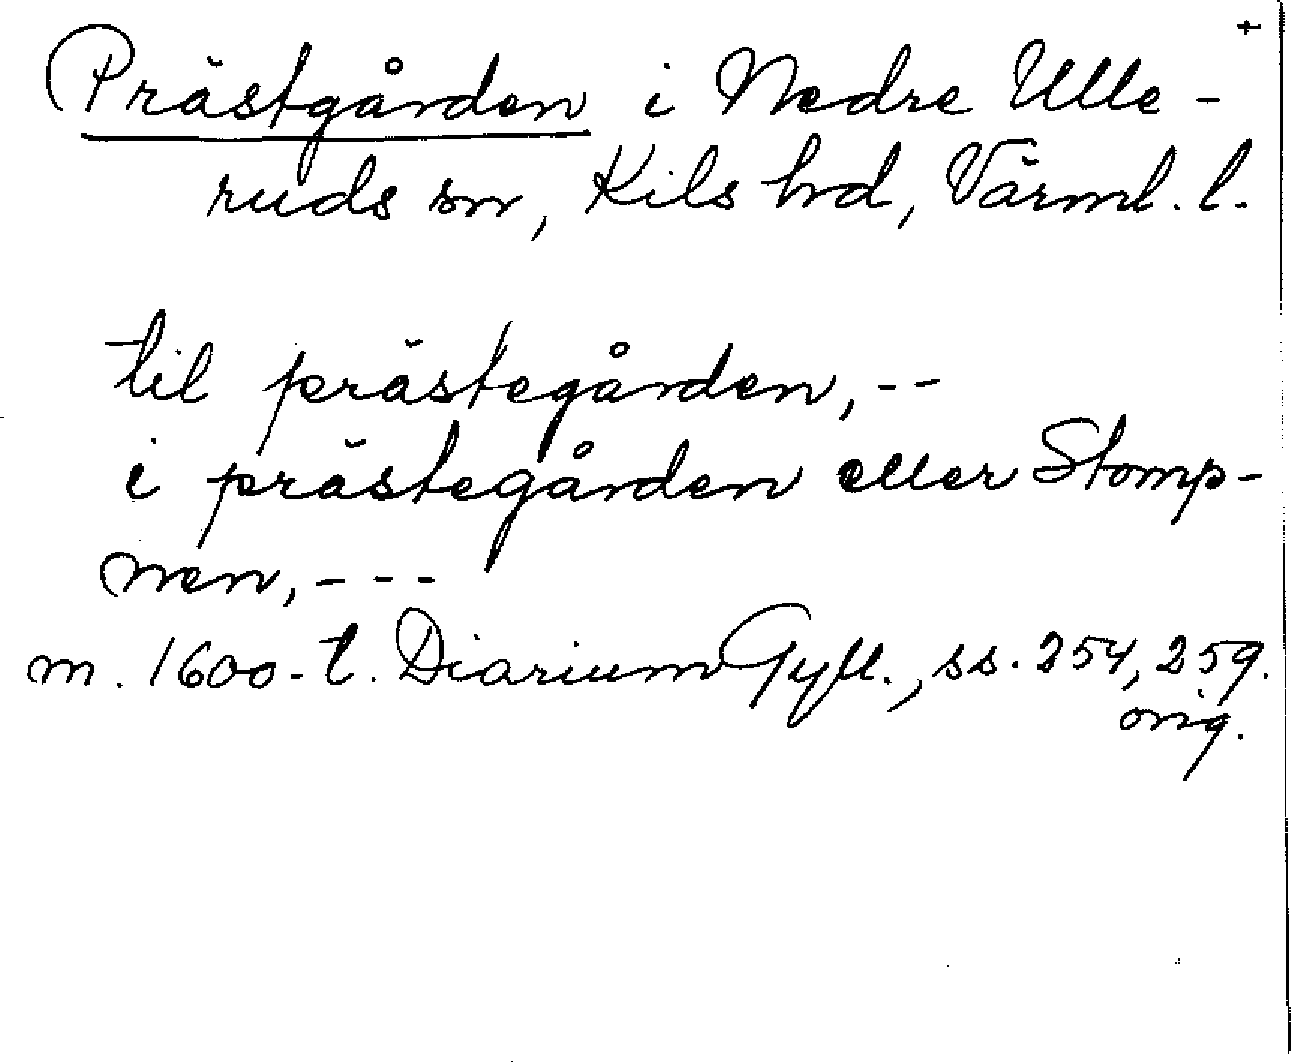 +
Prästgården i Nedre Ulle-
ruds sn, Kils hd, Värml. l.
til prästegården, --
i prästegården eller Stomp-
nen, ---
m. 1600-t. Diarium Gyll., ss. 254, 259.
orig.